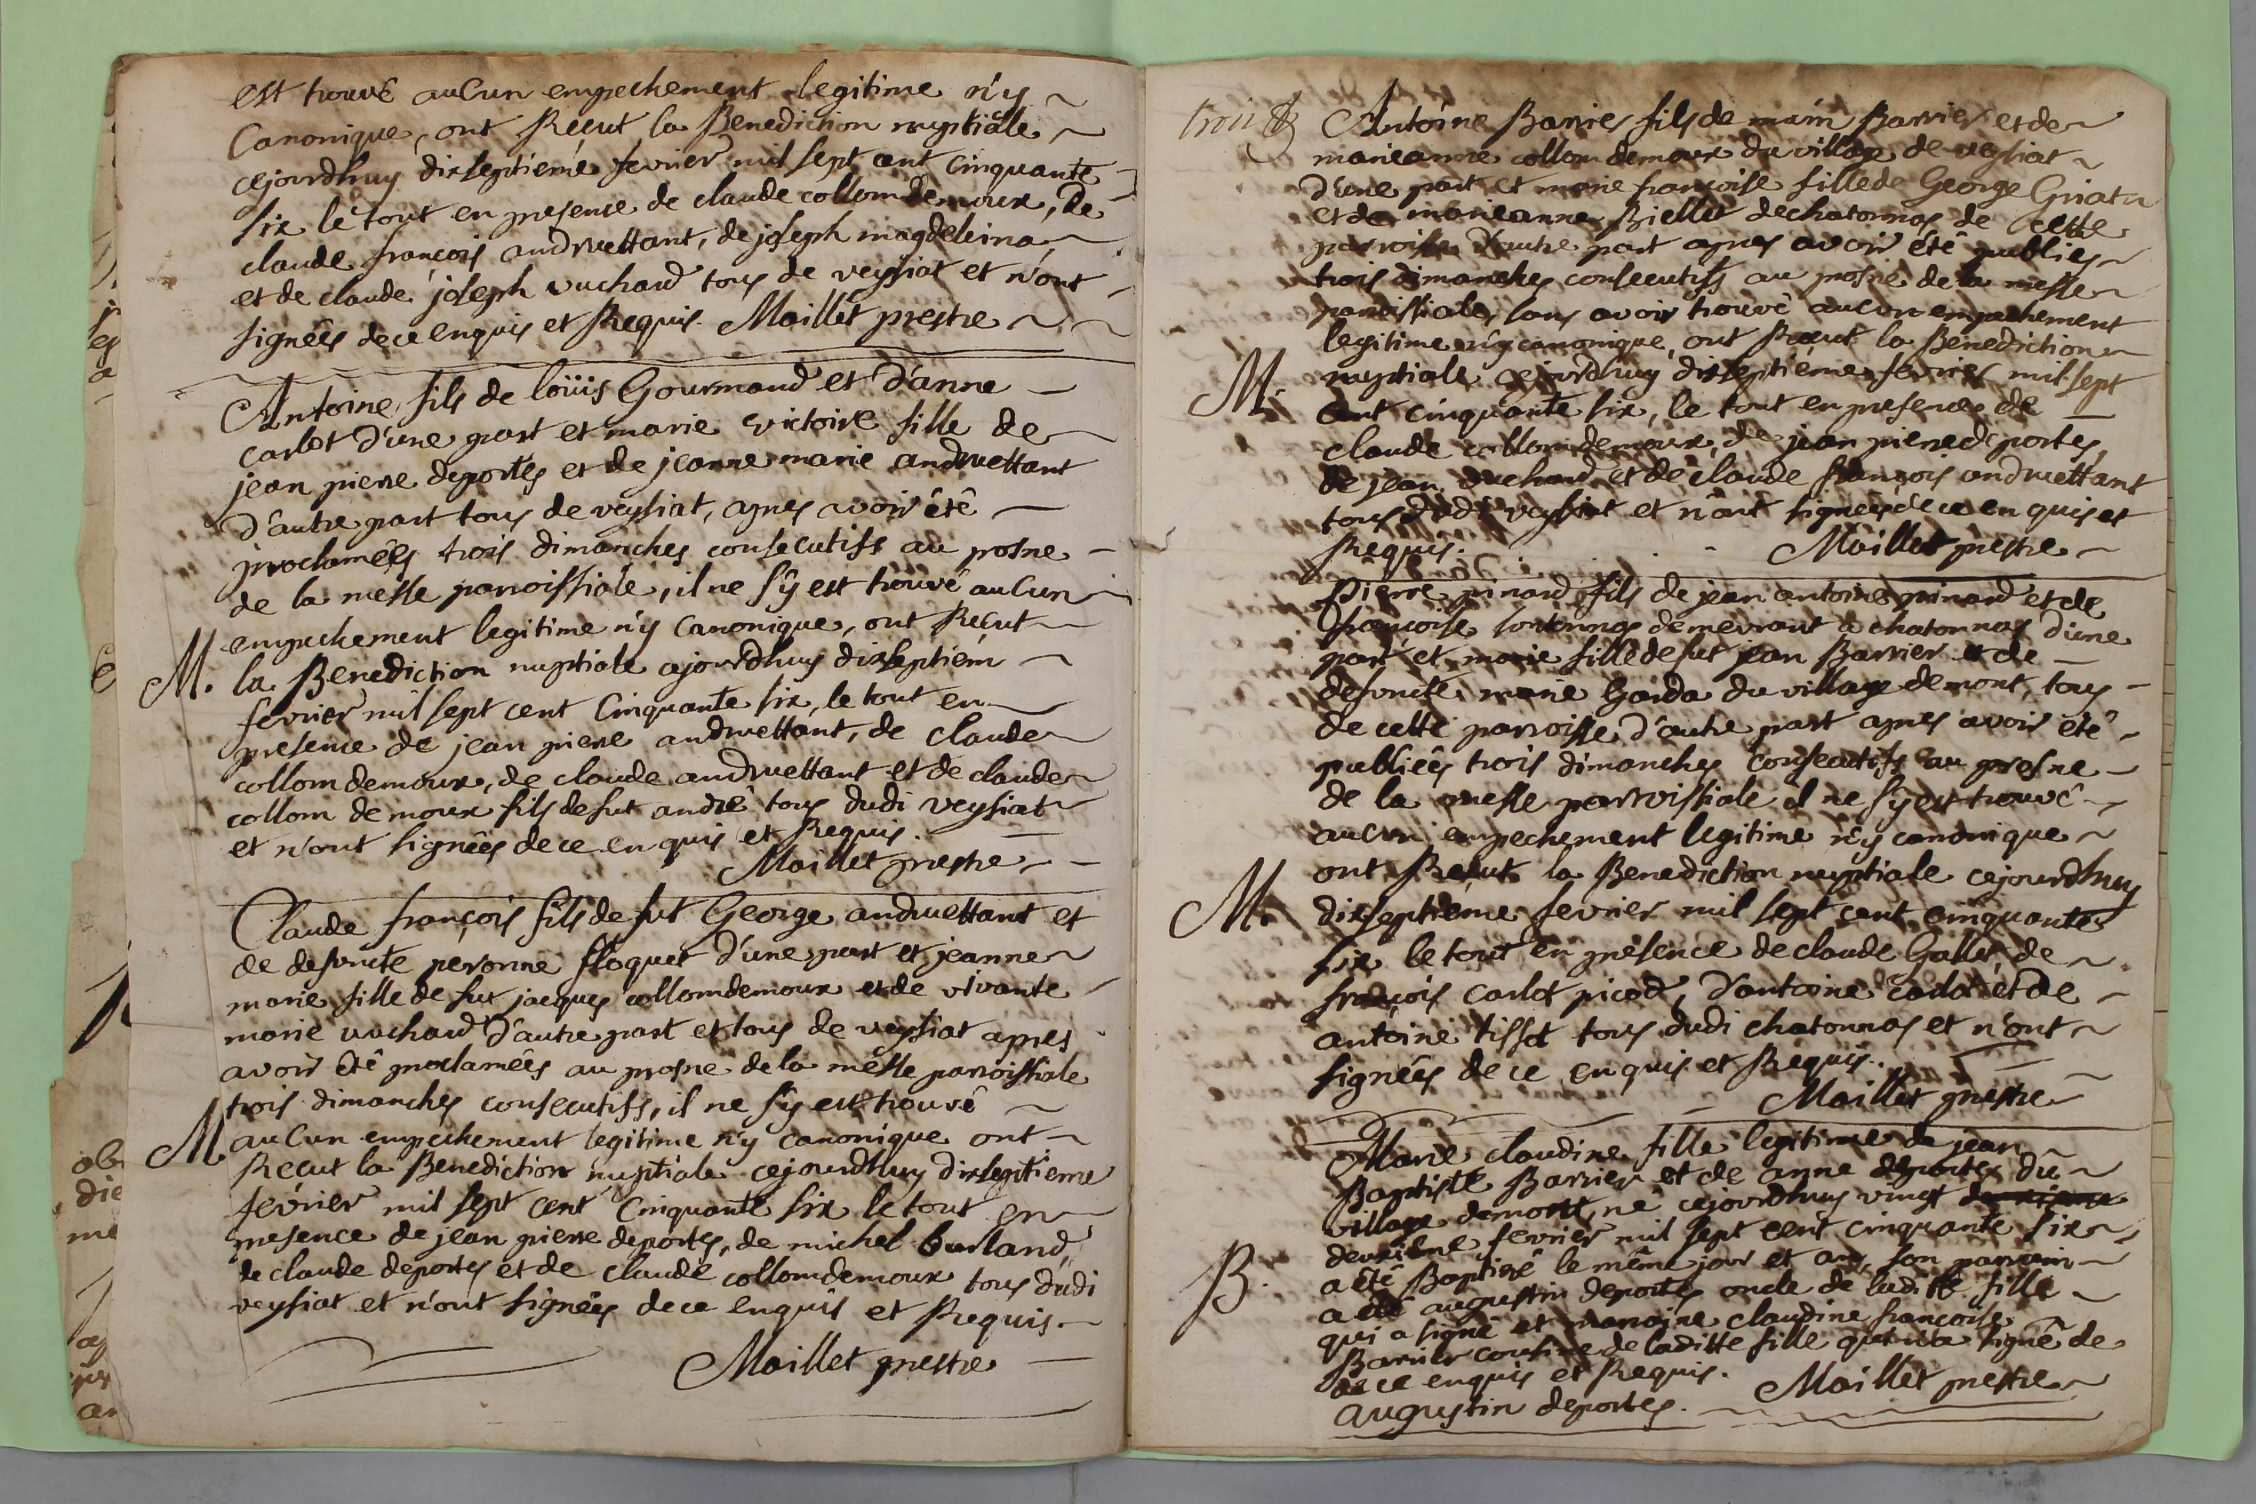 est trouvé aucun empechement legitime n'y
Canonique, ont Recut la Benediction nuptiale
cejourdhuy dixseptieme fevrier mil sept cent cinquante
six le tout en presence de claude collomdemoux, de
claude françois andruettant, de joseph magdeleina
et de claude joseph vuchard tous de veysiat et n'ont
signées de ce enquis et Requis. Maillet prestre
Antoine fils de loüis Gourmand et d'anne
carlot d'une part et marie victoire fille de
jean pierre deportes et de jeanne marie andruettant
d'autre part tous de veysiat, apres avoir été
proclamées trois dimanches consecutifs au prosne
de la messe parroissiale, il ne s'y est trouvé aucun
empechement legitime n'y Canonique, ont Recut
M. la Benediction nuptiale ajourdhuy dixseptiem
fevrier mil sept cent Cinquante six, le tout en
presence de jean pierre andruettant, de claude
collomdemoux, de claude andruettant et de claude
collom demoux fils de fut andré tous dudi veysiat
et n'ont signées de ce enquis et Requis.
Maillet prestre
Claude françois fils de fut George andruettant et
de defuncte peronne floquet d'une part et jeanne
marie fille de fut jacques collomdemoux et de vivante
marie vuchard d'autre part et tous de veysiat apres
avoir été proclamées au prosne de la messe parroissiale
trois dimanches consecutifs, il ne s'y est trouvé
M. aucun empechement legitime n'y canonique ont
Recut la Benediction nuptiale cejourdhuy dixseptieme
fevrier mil sept cent Cinquante six le tout en
presence de jean pierre deportes, de michel burland,
de claude deportes et de claude collomdemoux tous dudi
veysiat et n'ont signées de ce enquis et Requis.
Maillet prestre
Antoine Barrier fils de Barrier et de
marieanne collomdemoux du village de veysiat
d'une part et marie françoise fille de George
et de marieanne Biellet de chatonnas de cette
parroisse d'autre part apres avoir été publies
trois dimanches consecutifs au prosne de la messe
parroissiale, sans avoir trouvé aucun empechement
legitime n'y canonique, ont Recut la Benediction
M. nuptiale cejourdhuy dixseptiéme fevrier mil sept
cent cinquante six, le tout en presence de
claude collomdemoux, de jean pierre deportes,
de jean vuchard et de claude françois andruettant
tous dudi veysiat et n'ont signées de ce enquis et
Requis. Maillet prestre
Pierre pinard fils de jean antoine pinard et de
françoise sontonnas demeurant a chatonnas d'une
part et marie fille de fut jean Barrier et de
defuncte marie Garda du village demont, tous
de cette parroisse d'autre part apres avoir été
publiées trois dimanches consecutifs au prosne
de la messe parroissiale il ne s'y est trouvé
aucun empechement legitime n'y canonique
ont Recut la Benediction nuptiale cejourdhuy
M. dixseptieme fevrier mil sept cent cinquante
six le tout en présence de claude Gallet, de
françois carlot picod, d'antoine carlot et de
antoine tissot tous dudi chatonnas et n'ont
signées de ce enquis et Requis.
Maillet prestre
Marie claudine fille legitime de jean
Baptiste Barrier et de anne deportes du
village demont, né cejourdhuy vingt
deuxiéme fevrier mil sept cent cinquante six
B. a été Baptisé le même jour et an, son parrain
a été augustin deportes oncle de laditte fille
qui a signé et marraine claudine françoise
Barrier cousine de laditte fille qui n'a signé de
de ce enquis et Requis. Maillet prestre
augustin deportes.